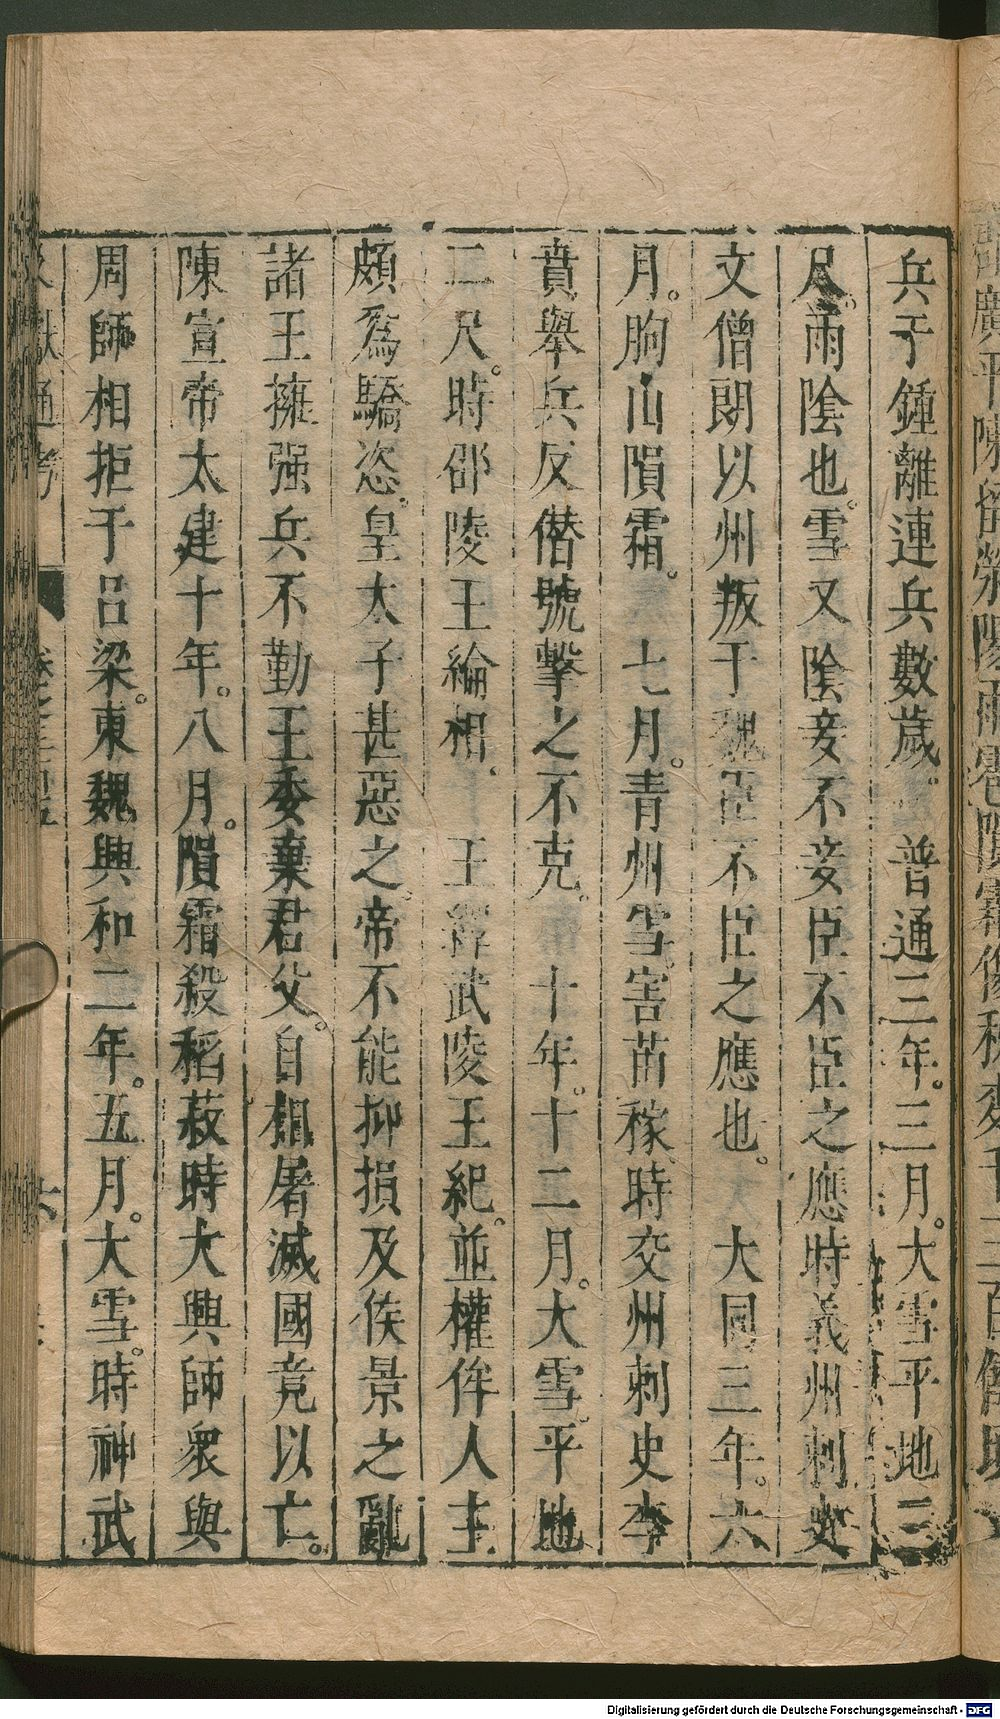 兵于鍾離連兵數歲。　普通三年。三月。大雪平地三
尺。雨陰也。雪又陰妾不妾臣不臣之應時義州刺史
文僧朗以州叛于魏臣不臣之應也。　大同三年。六
月。朐山隕霜。　七月。青州雪。害苗稼時交州刺史李
賁舉兵反僣號擊之不克。　十年。十二月。大雪平地
二尺。時邵陵王綸相　王繹武陵王紀。並權侔人主
頗為驕恣。皇太子甚惡之。帝不能抑損及侯景之亂
諸王擁强兵不勤王委棄君父。自相屠滅國竟以亡。
陳宣帝太建十年。八月。隕霜殺稻菽時大興師衆與
周師相拒于呂梁。東魏興和二年。五月。大雪。時神武
文獻通考　卷之三百五　六
Digitalisierung gefördert durch die Deutsche Forschungsgemeinschaft - DFG